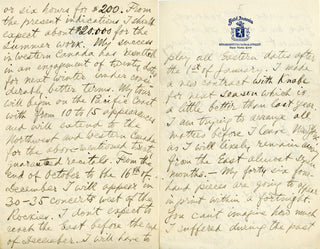 or six hours for $200. From
the present indications I shall
expect about $20.000 for the
summer work. My success
in Western Canada has resulted
in an engagement of twenty dates
for next winter under consi-
derably better terms. My tour
will begin on the Pacific Coast
with from 10 to 15 appearances
and will extend in the
Northwest and Western Canada
for the above-mentioned twenty
guaranteed recitals. From the
end of October to the 16th of
December I will appear in
30-35 concerts west of the
Rockies. I don't expect to
reach the East before the end
of December. I will have to
Hotel
New York City
play all Eastern dates after
the 1st of January. I made
a new contract with Knabe
for next season which is
a little better than last year.
I am trying to arrange all
matters before I leave
as I will likely remain away
from the East almost seven
months. — My forty six four-
hand pieces are going to appear
in print within a fortnight.
You can't imagine how much
I suffered during the past